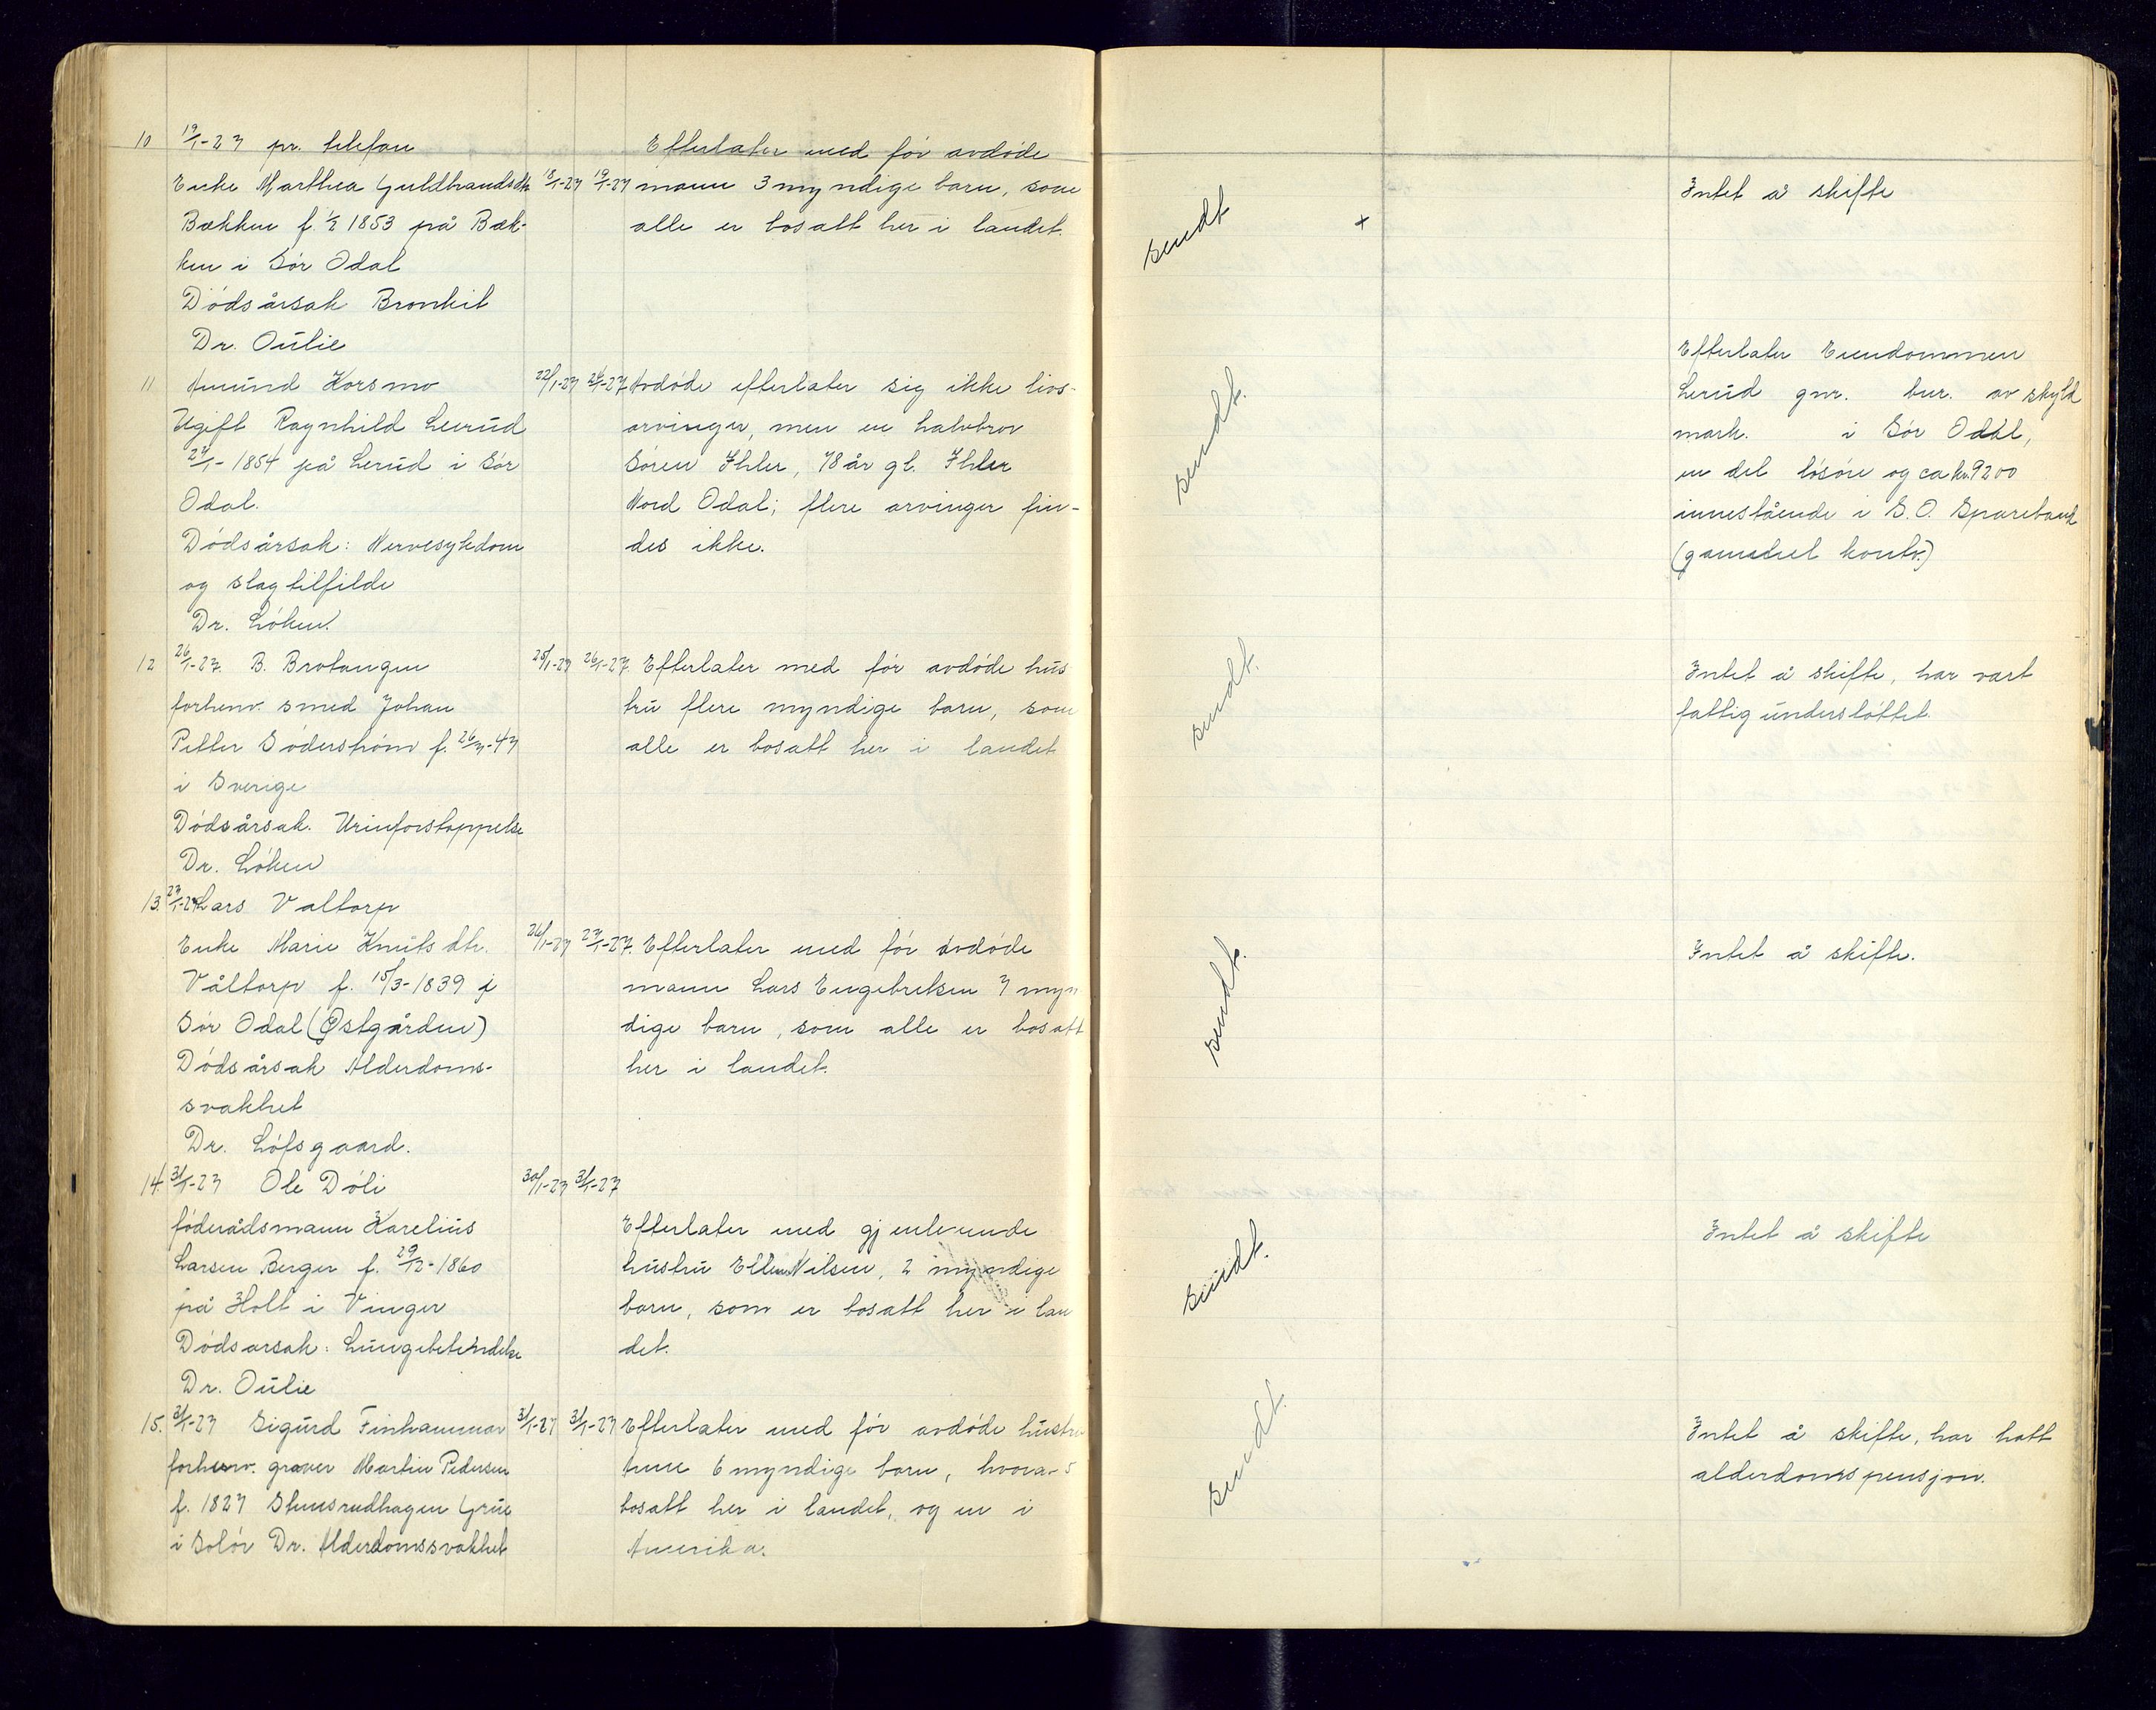 10 19/1-27 pr. telefon
Enke Marthea Guldbrandsdtr.
Bækken f. 1/2 1853 på Bæk-
ken i Sór Odal
Dódsårsak Bronkit
Dr. Oulie
18/1-27 19/1-27
Efterlater med fór avdóde
mann 3 myndige barn, som
alle er bosatt her i landet.
sendt
x
Intet å skifte
11 Amund Korsmo
Ugift Ragnhild Lerud
27/1-1854 på Lerud i Sór
Odal.
Dódsårsak: Nervesykdom
og slagtilfilde
Dr. Lóken.
22/1-27 24/1-27
Avdóde efterlater sig ikke livs-
arvinger, men en halvbror
Sóren Ihler, 78 år gl. Ihler
Nord Odal; flere arvinger fin-
des ikke.
sendt.
Efterlater Eiendommen
Lerud gnr. bnr. av skyld
mark. i Sór Odal,
en del lósóre og ca kr. 9200
innestående i S.O. Sparebank
12 26/1-27. B. Brotangen
forhenv. smed Johan
Petter Söderström f. 26/3-43
i Sverige
Dódsårsak. Urinforstoppelse
Dr. Lóken
25/1-27 26/1-27.
Efterlater med fór avdóde hus
tru flere myndige barn, som
alle er bosatt her i landet
sendt.
Intet å skifte, har vært
fattigunderstóttet.
13. 27/1-27 Lars Valtorp
Enke Marie Knuts dtr.
Våltorp f. 15/3-1839 i
Sór Odal (Østgården)
Dódsårsak Alderdoms-
svakhet
Dr. Lófsgaard.
26/1-27 27/1-27.
Efterlater med fór avdóde
mann Lars Engebretsen 7 myn
dige barn, som alle er bosatt
her i landet.
sendt.
Intet å skifte.
14. 31/1-27 Ole Dóli
fóderådsmann Karelius
Larsen Berger f. 29/12-1860
på Holt i Vinger
Dódsarsak: Lungebetendelse
Dr. Oulie
30/1-27 31/1-27
Efterlater med gjenlevende
hustru Ellen Nilsen, 2 myndige
barn, som er bosatt her i lan
det.
sendt.
Intet å skifte
15. 31/1-27 Sigurd Finhammar
forhenv. graver Martin Pedersen
f. 1827 Grue
i Solór Dr. Alderdomssvakhet
31/1-27 31/1-27
Efterlater med fór avdóde hustru
Anne 6 myndige barn, hvorav 5
bosatt her i landet, og en i
Amerika.
sendt.
Intet å skifte, har hatt
alderdomspensjon.